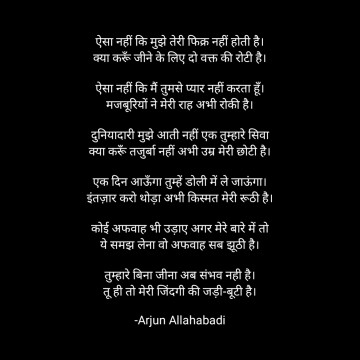 ऐसा नहीं कि मुझे तेरी फिक्र नहीं होती है।
क्या करूँ जीने के लिए दो वक्त की रोटी है।
ऐसा नहीं कि मैं तुमसे प्यार नहीं करता हूँ।
मजबूरियों ने मेरी राह अभी रोकी है।
दुनियादारी मुझे आती नहीं एक तुम्हारे सिवा
क्या करूँ तजुर्बा नहीं अभी उम्र मेरी छोटी है।
एक दिन आऊँगा तुम्हें डोली में ले जाऊंगा।
इंतज़ार करो थोड़ा अभी किस्मत मेरी रूठी है।
कोई अफवाह भी उड़ाए अगर मेरे बारे में तो
ये समझ लेना वो अफवाह सब झूठी है।
तुम्हारे बिना जीना अब संभव नही है।
तू ही तो मेरी जिंदगी की जड़ी-बूटी है।
-Arjun Allahabadi